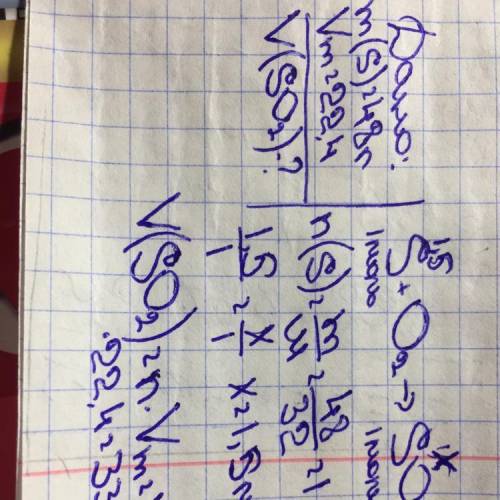 Дано:
m(S)=48г
Vm=22,4
V(SO₂)-?
1,5 x
S + O₂ → SO
1моль 1моль
n(S)=m/M=48/32=1
1,5/1=x/1 x=1,5м
V(SO₂)=n·Vm=
·22,4=33